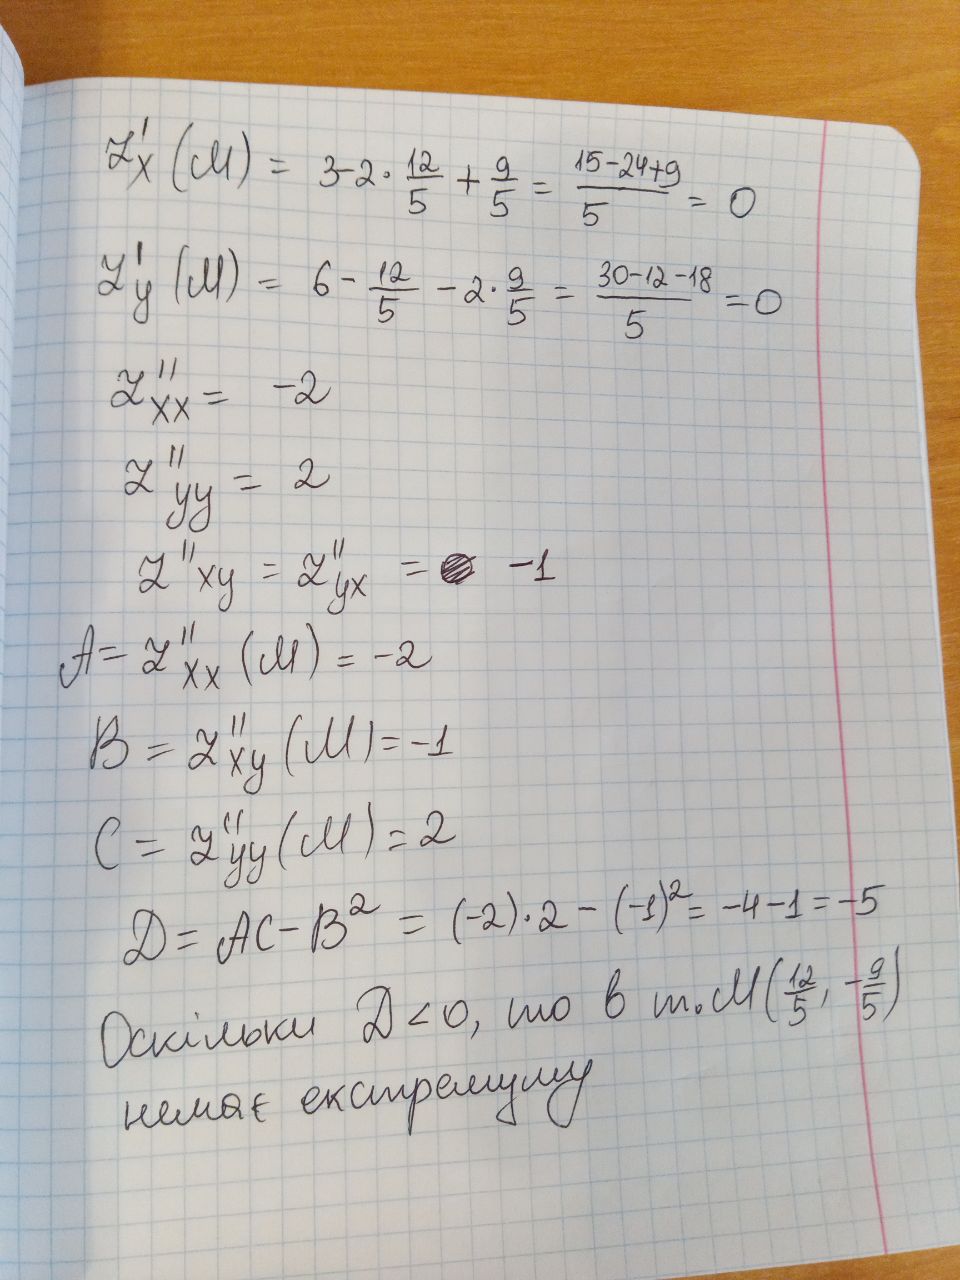 Z'x (M) = 3-2·12/5 + 9/5 = (15-24+9)/5 = 0
Z'y (M) = 6 - 12/5 - 2·9/5 = (30-12-18)/5 = 0
Z''xx = -2
Z''yy = 2
Z''xy = Z''yx = -1
A = Z''xx (M) = -2
B = Z''xy (M) = -1
C = Z''yy (M) = 2
D = AC - B² = (-2)·2 - (-1)² = -4-1 = -5
Оскільки D<0, то в т. M(12/5, -9/5)
немає екстремуму